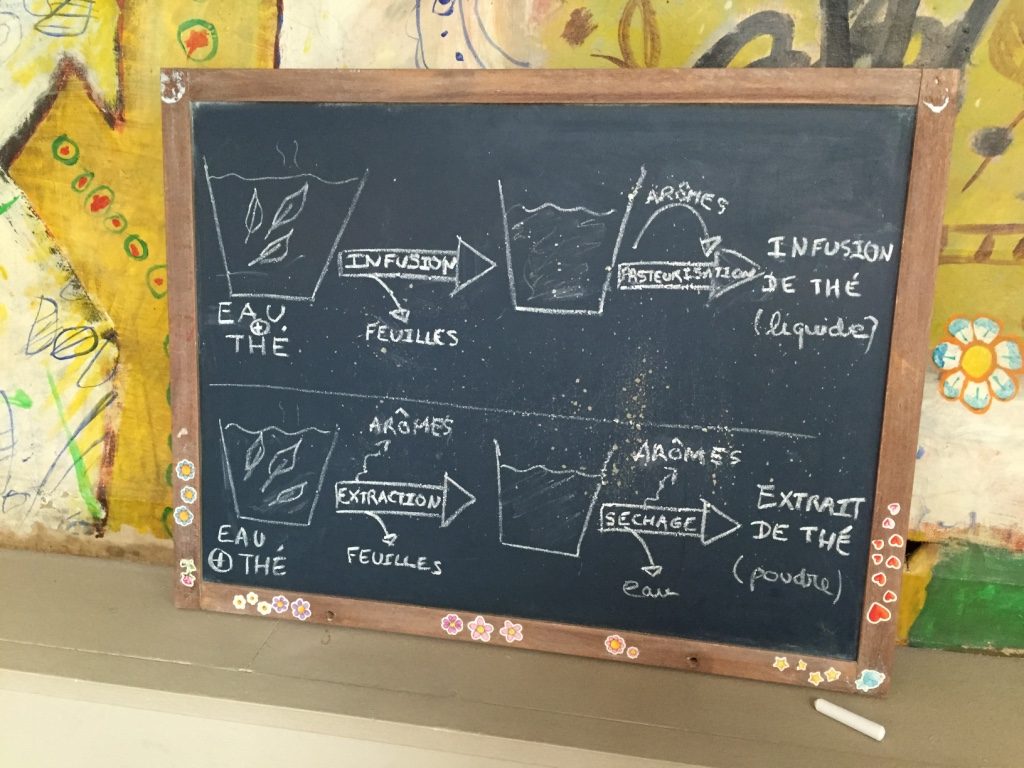 INFUSION
FEUILLES
EAU
+
THÉ
ARÔMES
PASTEURISATION
INFUSION
DE THÉ
(liquide)
ARÔMES
EXTRACTION
FEUILLES
EAU
+ THÉ
ARÔMES
SÉCHAGE
eau
EXTRAIT
DE THÉ
(poudre)